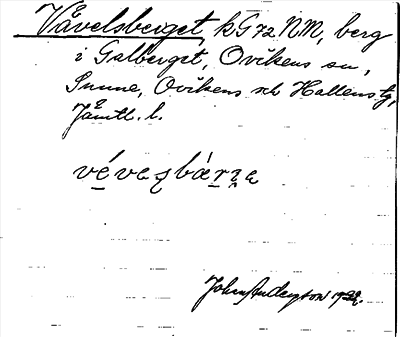 Våvelsberget, kG 72 NM, berg
i Galberget, Ovikens sn,
Sunne, Ovikens och Hallens tg,
Jämtl. l.
John Anderzson 1922.